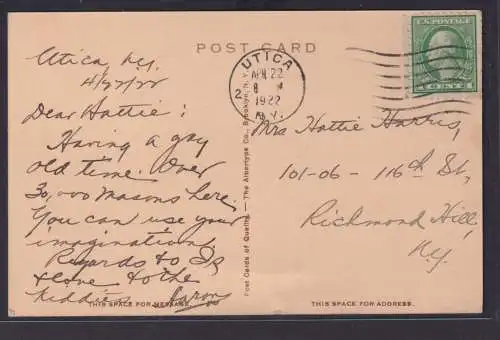 POST CARD
Utica, N.Y.
4/22/22
Dear Hattie:
Having a gay
old time. Over
30,000 Masons here.
You can use your
imagination.
Regards to
& love to the
kiddies Aaron
THIS SPACE FOR MESSAGE.
Post Cards of Quality. — The Albertype Co., Brooklyn, N.Y.
UTICA
APR 22
8
2
1922
N.Y.
U.S. POSTAGE
CENTS
Mrs Hattie Harris,
101-06 - 116th St,
Richmond Hill,
N.Y.
THIS SPACE FOR ADDRESS.